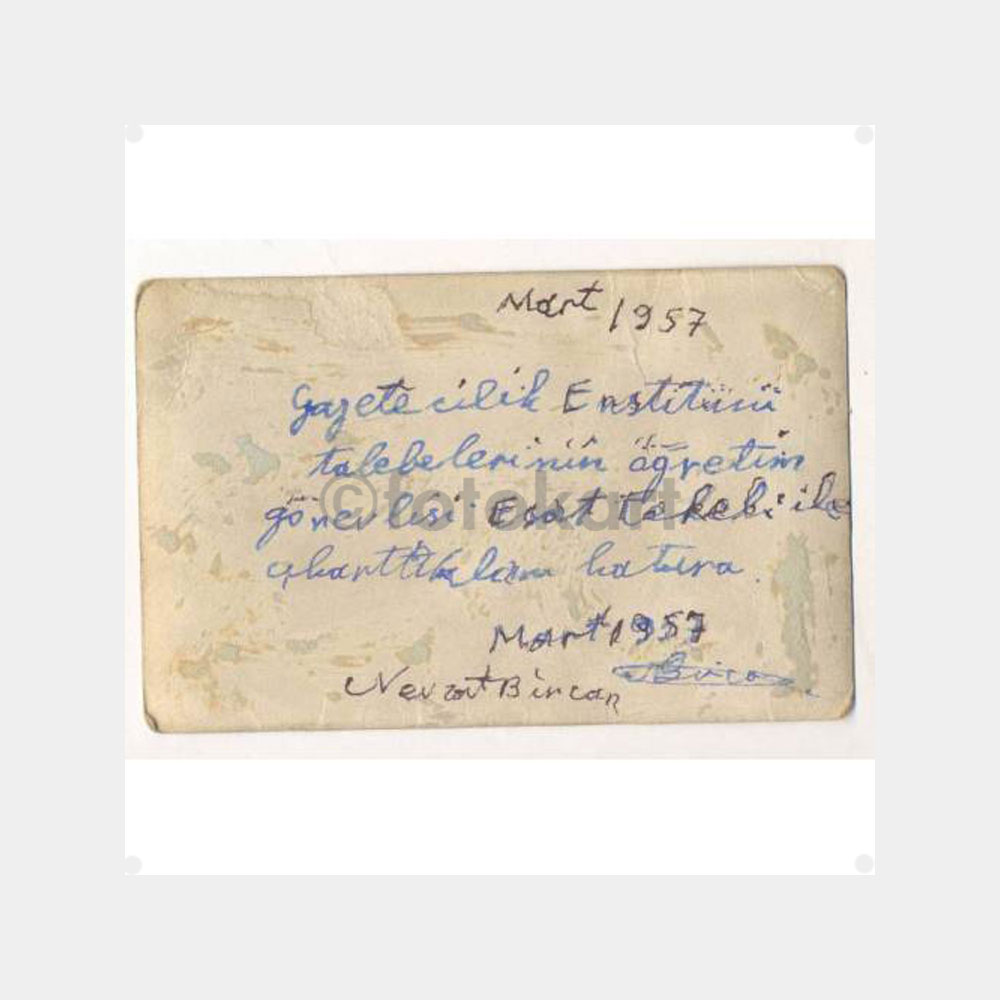 Mart 1957
Gazetecilik Enstitüsü
talebelerinin öğretim
görevlisi Esat Tekeli ile
çıkarttıkları hatıra.
Mart 1957
Nevzat Bircan
©fotokart